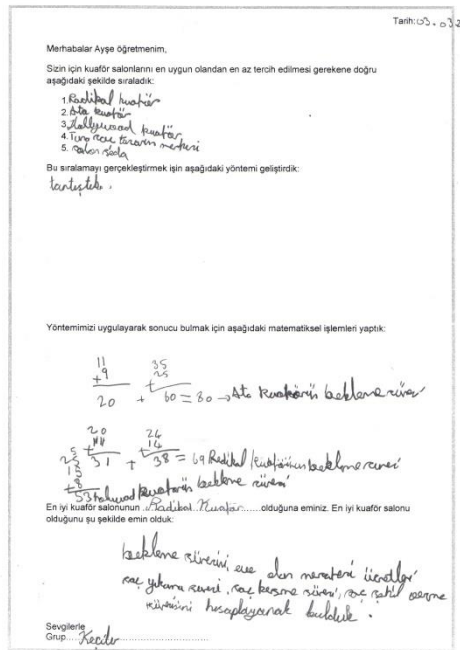 Tarih: 03.03.2
Merhabalar Ayşe öğretmenim,
Sizin için kuaför salonlarını en uygun olandan en az tercih edilmesi gerekene doğru
aşağıdaki şekilde sıraladık:
1. Radikal kuaför
2. Ata kuaför
3. Hollywood kuaför
4. Tuna saç tasarım merkezi
5. Salon Seda
Bu sıralamayı gerçekleştirmek işin aşağıdaki yöntemi geliştirdik:
tartıştık.
Yöntemimizi uygulayarak sonucu bulmak için aşağıdaki matematiksel işlemleri yaptık:
11 35
+9 25
20 + 60 = 80 → Ata kuaförün bekleme süresi
20 24
+11 14
31 + 38 = 69 Radikal kuaförünün bekleme süresi
53 kuaförün bekleme süresi
En iyi kuaför salonunun Radikal Kuaför olduğuna eminiz. En iyi kuaför salonu
olduğunu şu şekilde emin olduk:
bekleme süresini, eve olan ücretleri
saç yıkama süresi, saç kesme süresi, saç şekil verme
süresini hesaplayarak bulduk.
Sevgilerle
Grup.... Keçiler